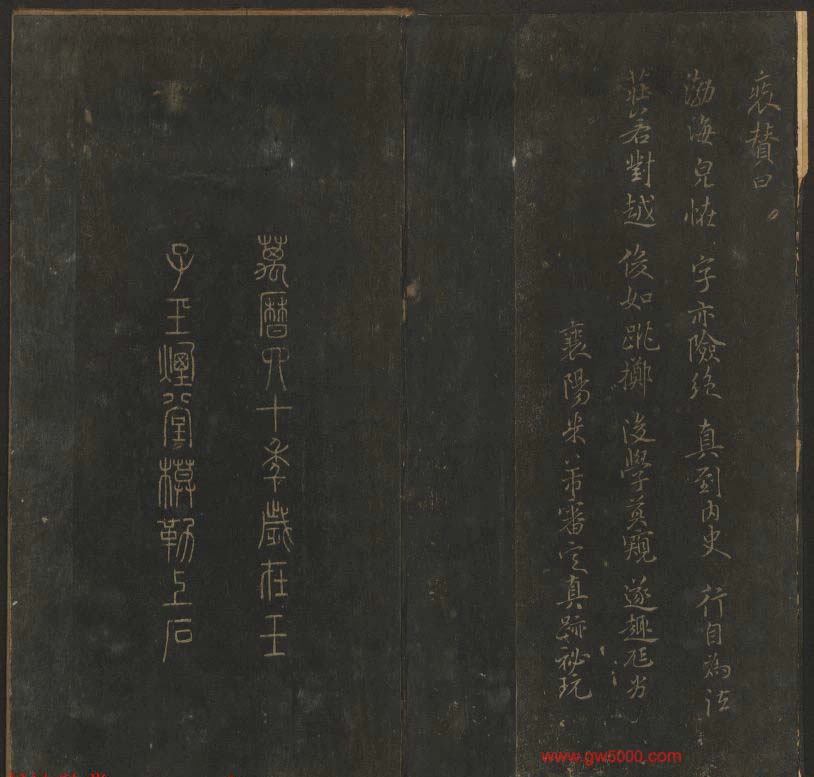 贊曰
渤海皃恠字亦險絕真到內史行自為法
莊若對越俊如跳擲後學莫窺遂趣尪劣
襄陽米芾審定真跡祕玩
萬曆四十年歲在壬
子玉煙堂模勒上石
www.gw5000.com